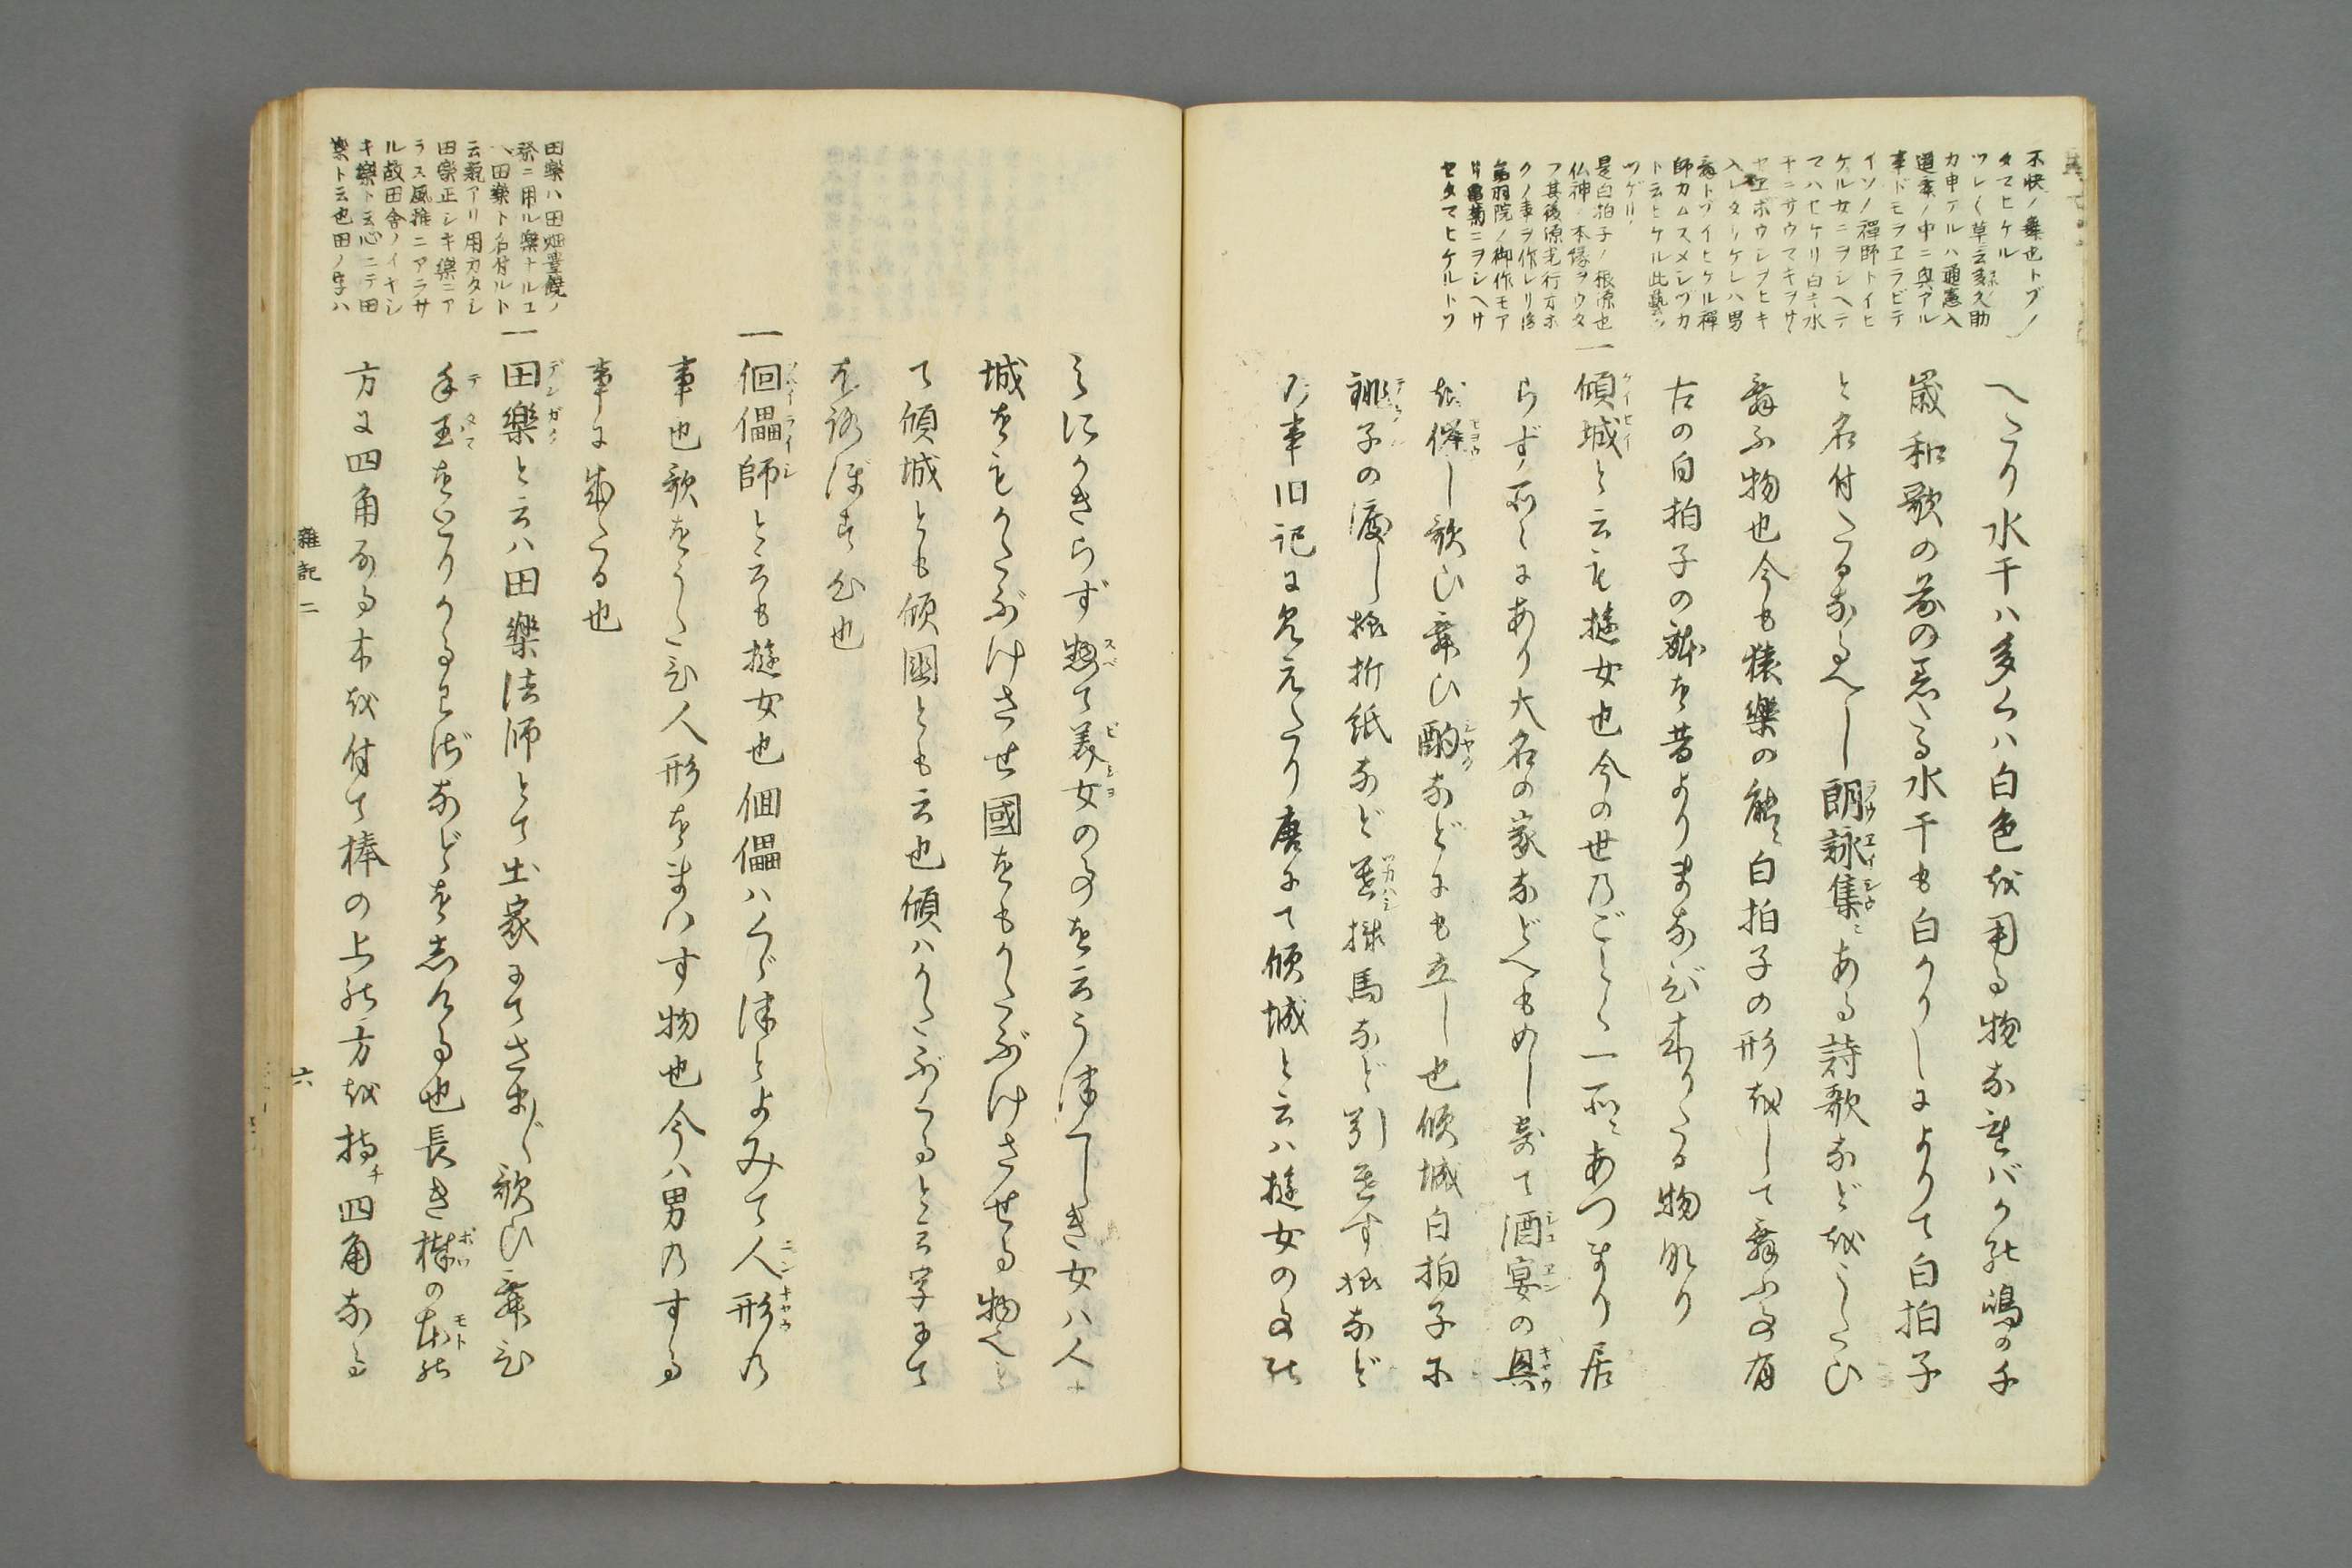 不快ノ舞也トゾノ
タマヒケル
ツレ〱草云多久助
カ申ケルハ通憲入
道舞ノ中ニ興アル
事ドモヲヱラビテ
イソノ禅師トイヒ
ケル女ニヲシヘテ
マハセケリ白キ水
干ニサウマキヲサヽ
セヱボウシヲヒキ
入レタリケレハ男
舞トゾイヒケル禅
師カムスメシヅカ
ト云ヒケル此藝ヲ
ツゲリ
是白拍子ノ根源也
仏神ノ本縁ヲウタ
フ其後源光行オホ
クノ事ヲ作レリ後
鳥羽院ノ御作モア
リ亀菊ニヲシヘサ
セタマヒケルトゾ
へたり水干ハ多くハ白色を用る物なれバかの嶋の千
歳和歌の前の著たる水干も白かりしによりて白拍子
と名付たるなるへし朗詠集ニある詩歌などをうたひ
舞ふ物也今も猿樂の能ニ白拍子の形をして舞ふ事有
古の白拍子の舞を昔よりまなび来りたる物なり
一傾城と云も遊女也今の世乃ごとく一所ニあつまり居
らず所々にあり大名の家などへもめし寄て酒宴の興
を催し歌ひ舞ひ酌などにも立し也傾城白拍子に
銚子の渡し様折紙など
た事旧記に見えたり唐にて傾城と云ハ遊女の事に
てにかきらず惣て美女の事を云うつくしき女ハ人ナ
城をもかたぶけさせ國をもかたぶけさせる物也
て傾城とも傾國とも云也傾ハかたぶくると云字にて
ほろぼす心也
一傀儡師と云も遊女也傀儡ハくゞつとよみて人形乃
事也歌をうたひ人形をまハす物也今ハ男乃する
事に成たる也
田樂ハ田畑豊饒ノ
祭ニ用ル楽ナルユ
ヘ田樂ト名付ルト
云説アリ用カタシ
田樂正シキ樂ニア
ラス風雅ニアラサ
ル故田舎ノイヤシ
キ樂ト云心ニテ田
楽ト云也田ノ字ハ
一田樂と云ハ田樂法師とて出家にてさま〲歌ひ舞ひ
手玉をとりかるわざなどをする也長き棒の本の
方に四角なる木を付て棒の上の方を持チ四角なる
雜記二
六